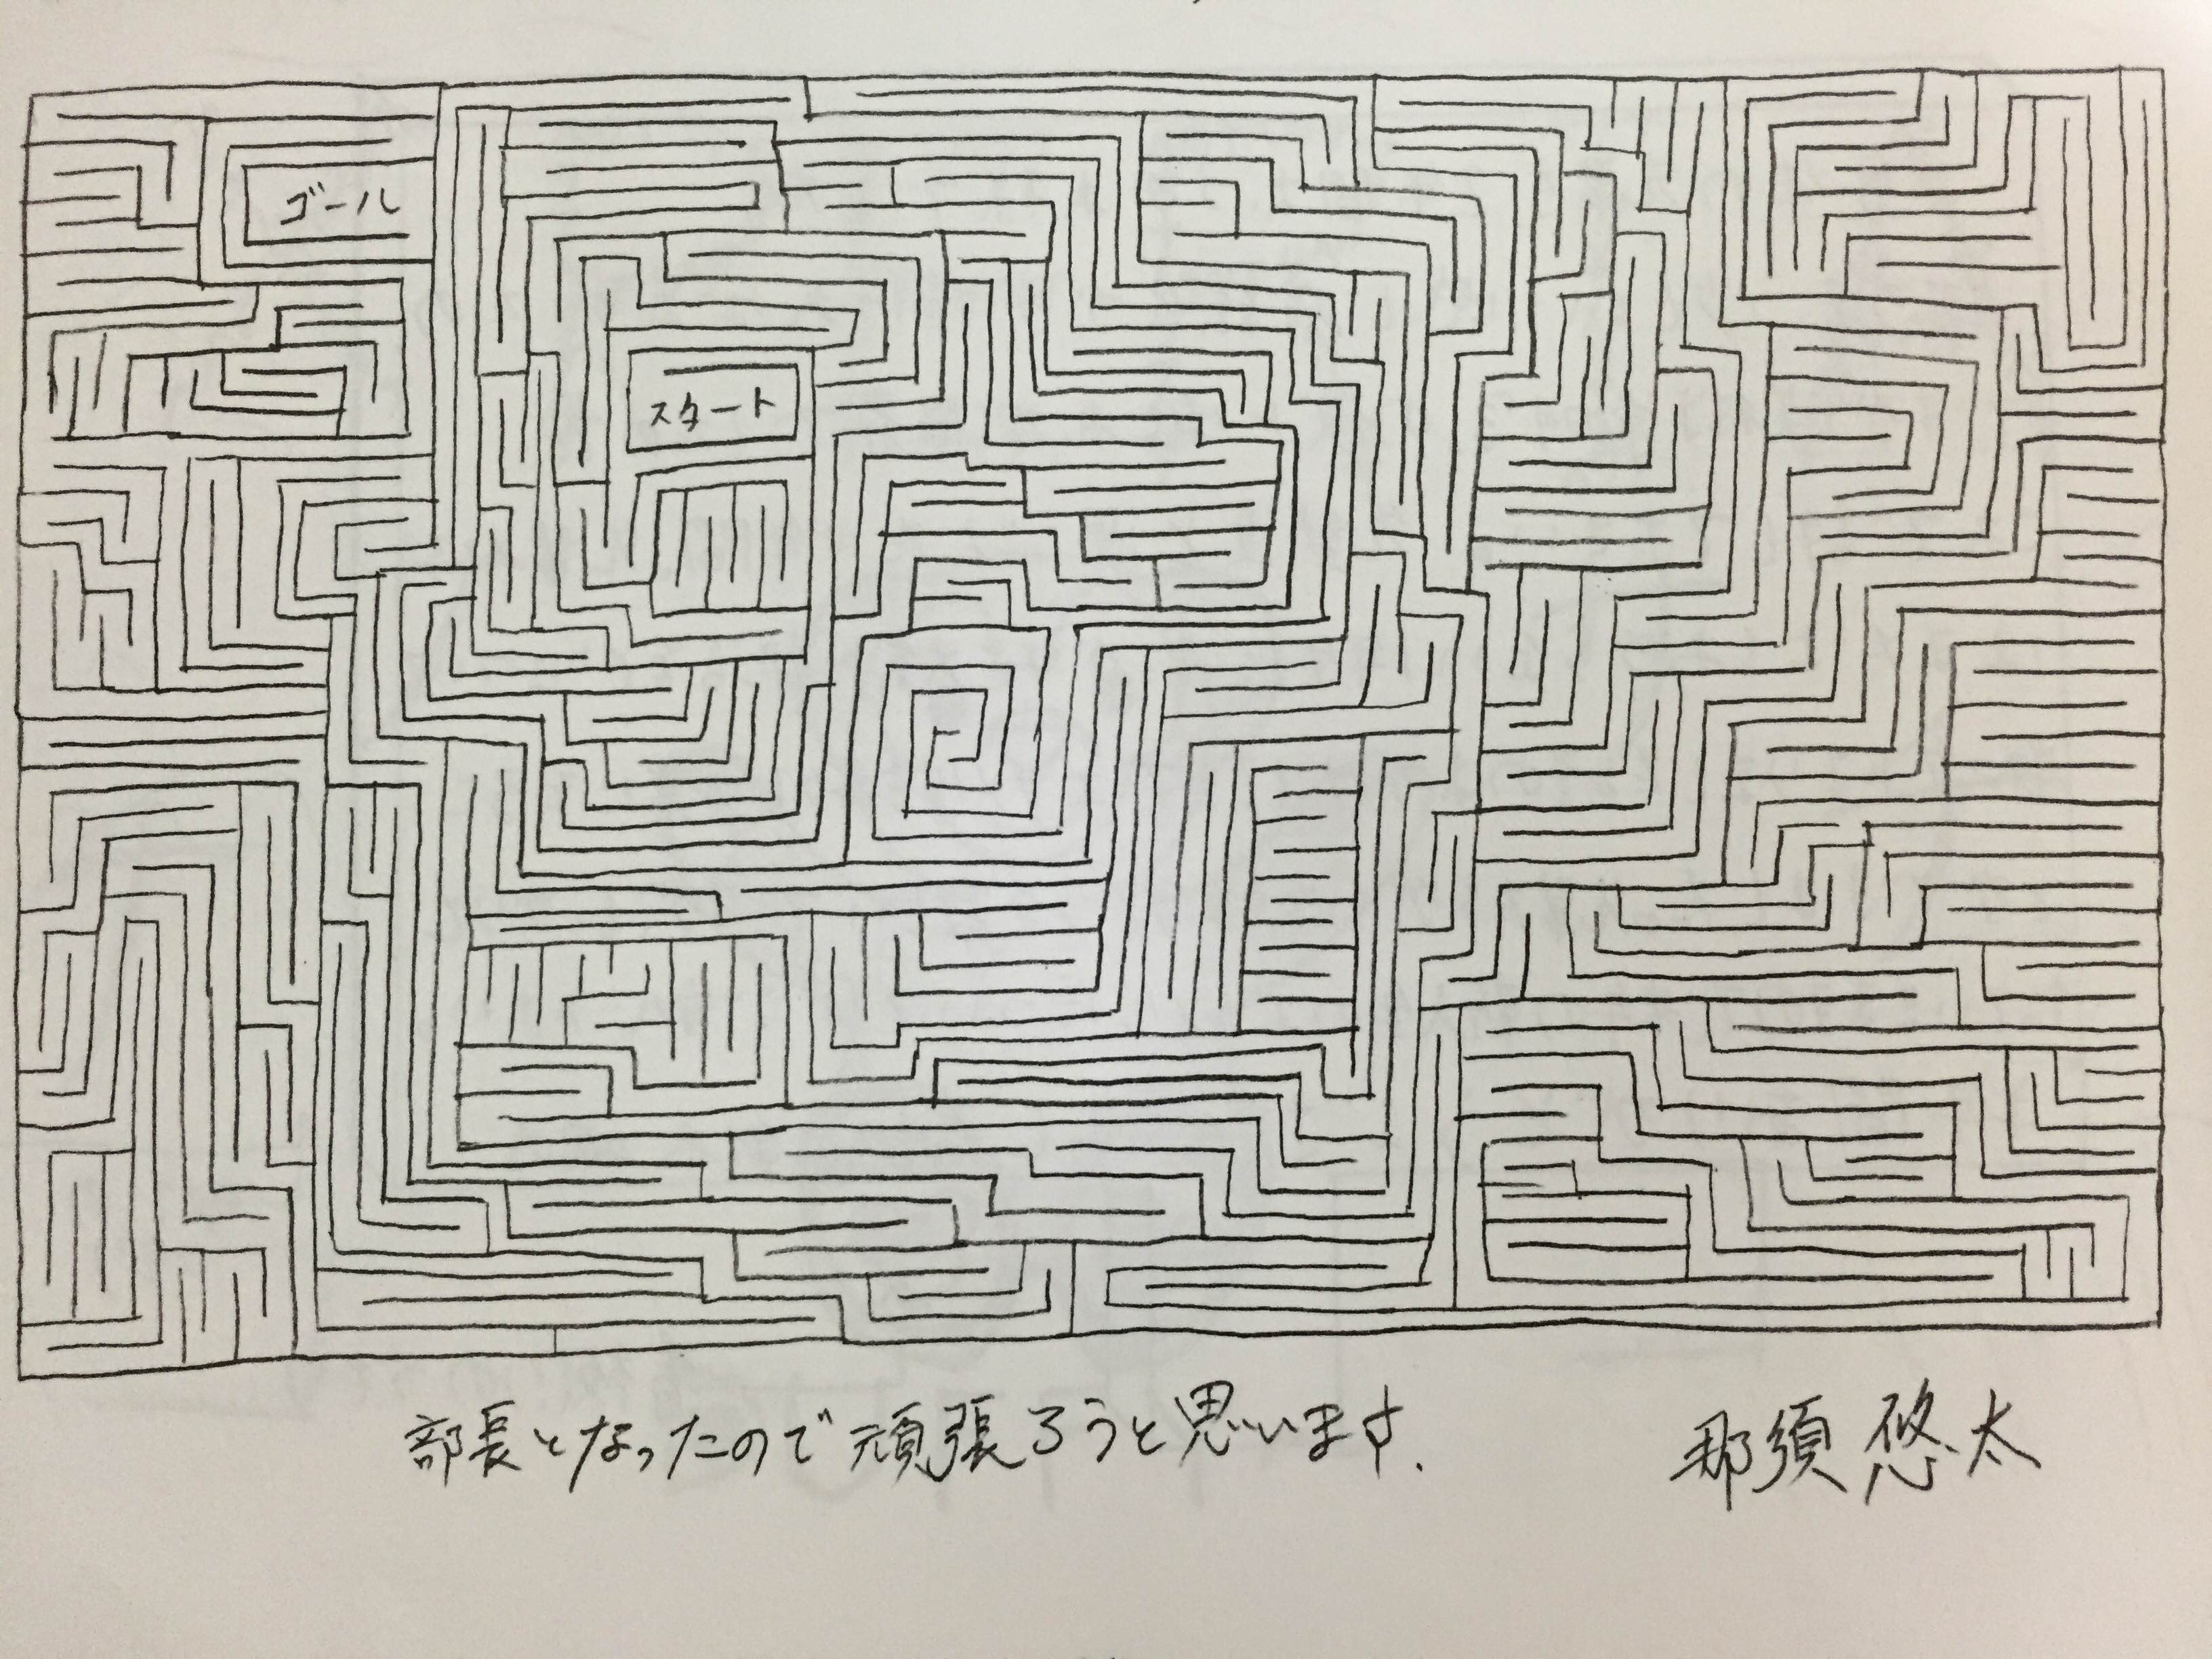 ゴール
スタート
部長となったので頑張ろうと思います.
那須 悠太